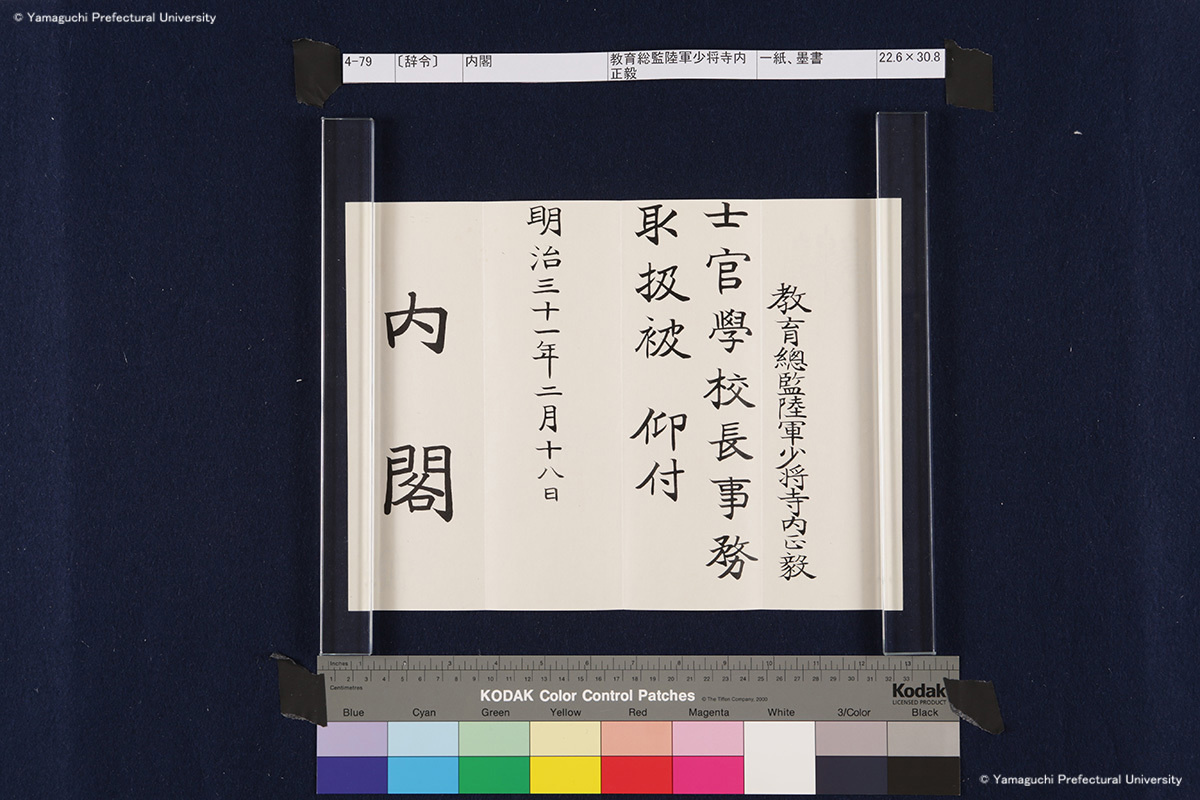 © Yamaguchi Prefectural University
4-79 〔辞令〕 内閣 教育総監陸軍少将寺内正毅 一紙、墨書 22.6×30.8
教育總監陸軍少将寺内正毅
士官學校長事務
取扱被 仰付
明治三十一年二月十八日
内閣
Inches 1 2 3 4 5 6 7 8 9 10 11 12 13
Centimetres 1 2 3 4 5 6 7 8 9 10 11 12 13 14 15 16 17 18 19 20 21 22 23 24 25 26 27 28 29 30 31 32 33
KODAK Color Control Patches © The Tiffen Company 2000
Kodak
LICENSED PRODUCT
Blue Cyan Green Yellow Red Magenta White 3/Color Black
© Yamaguchi Prefectural University